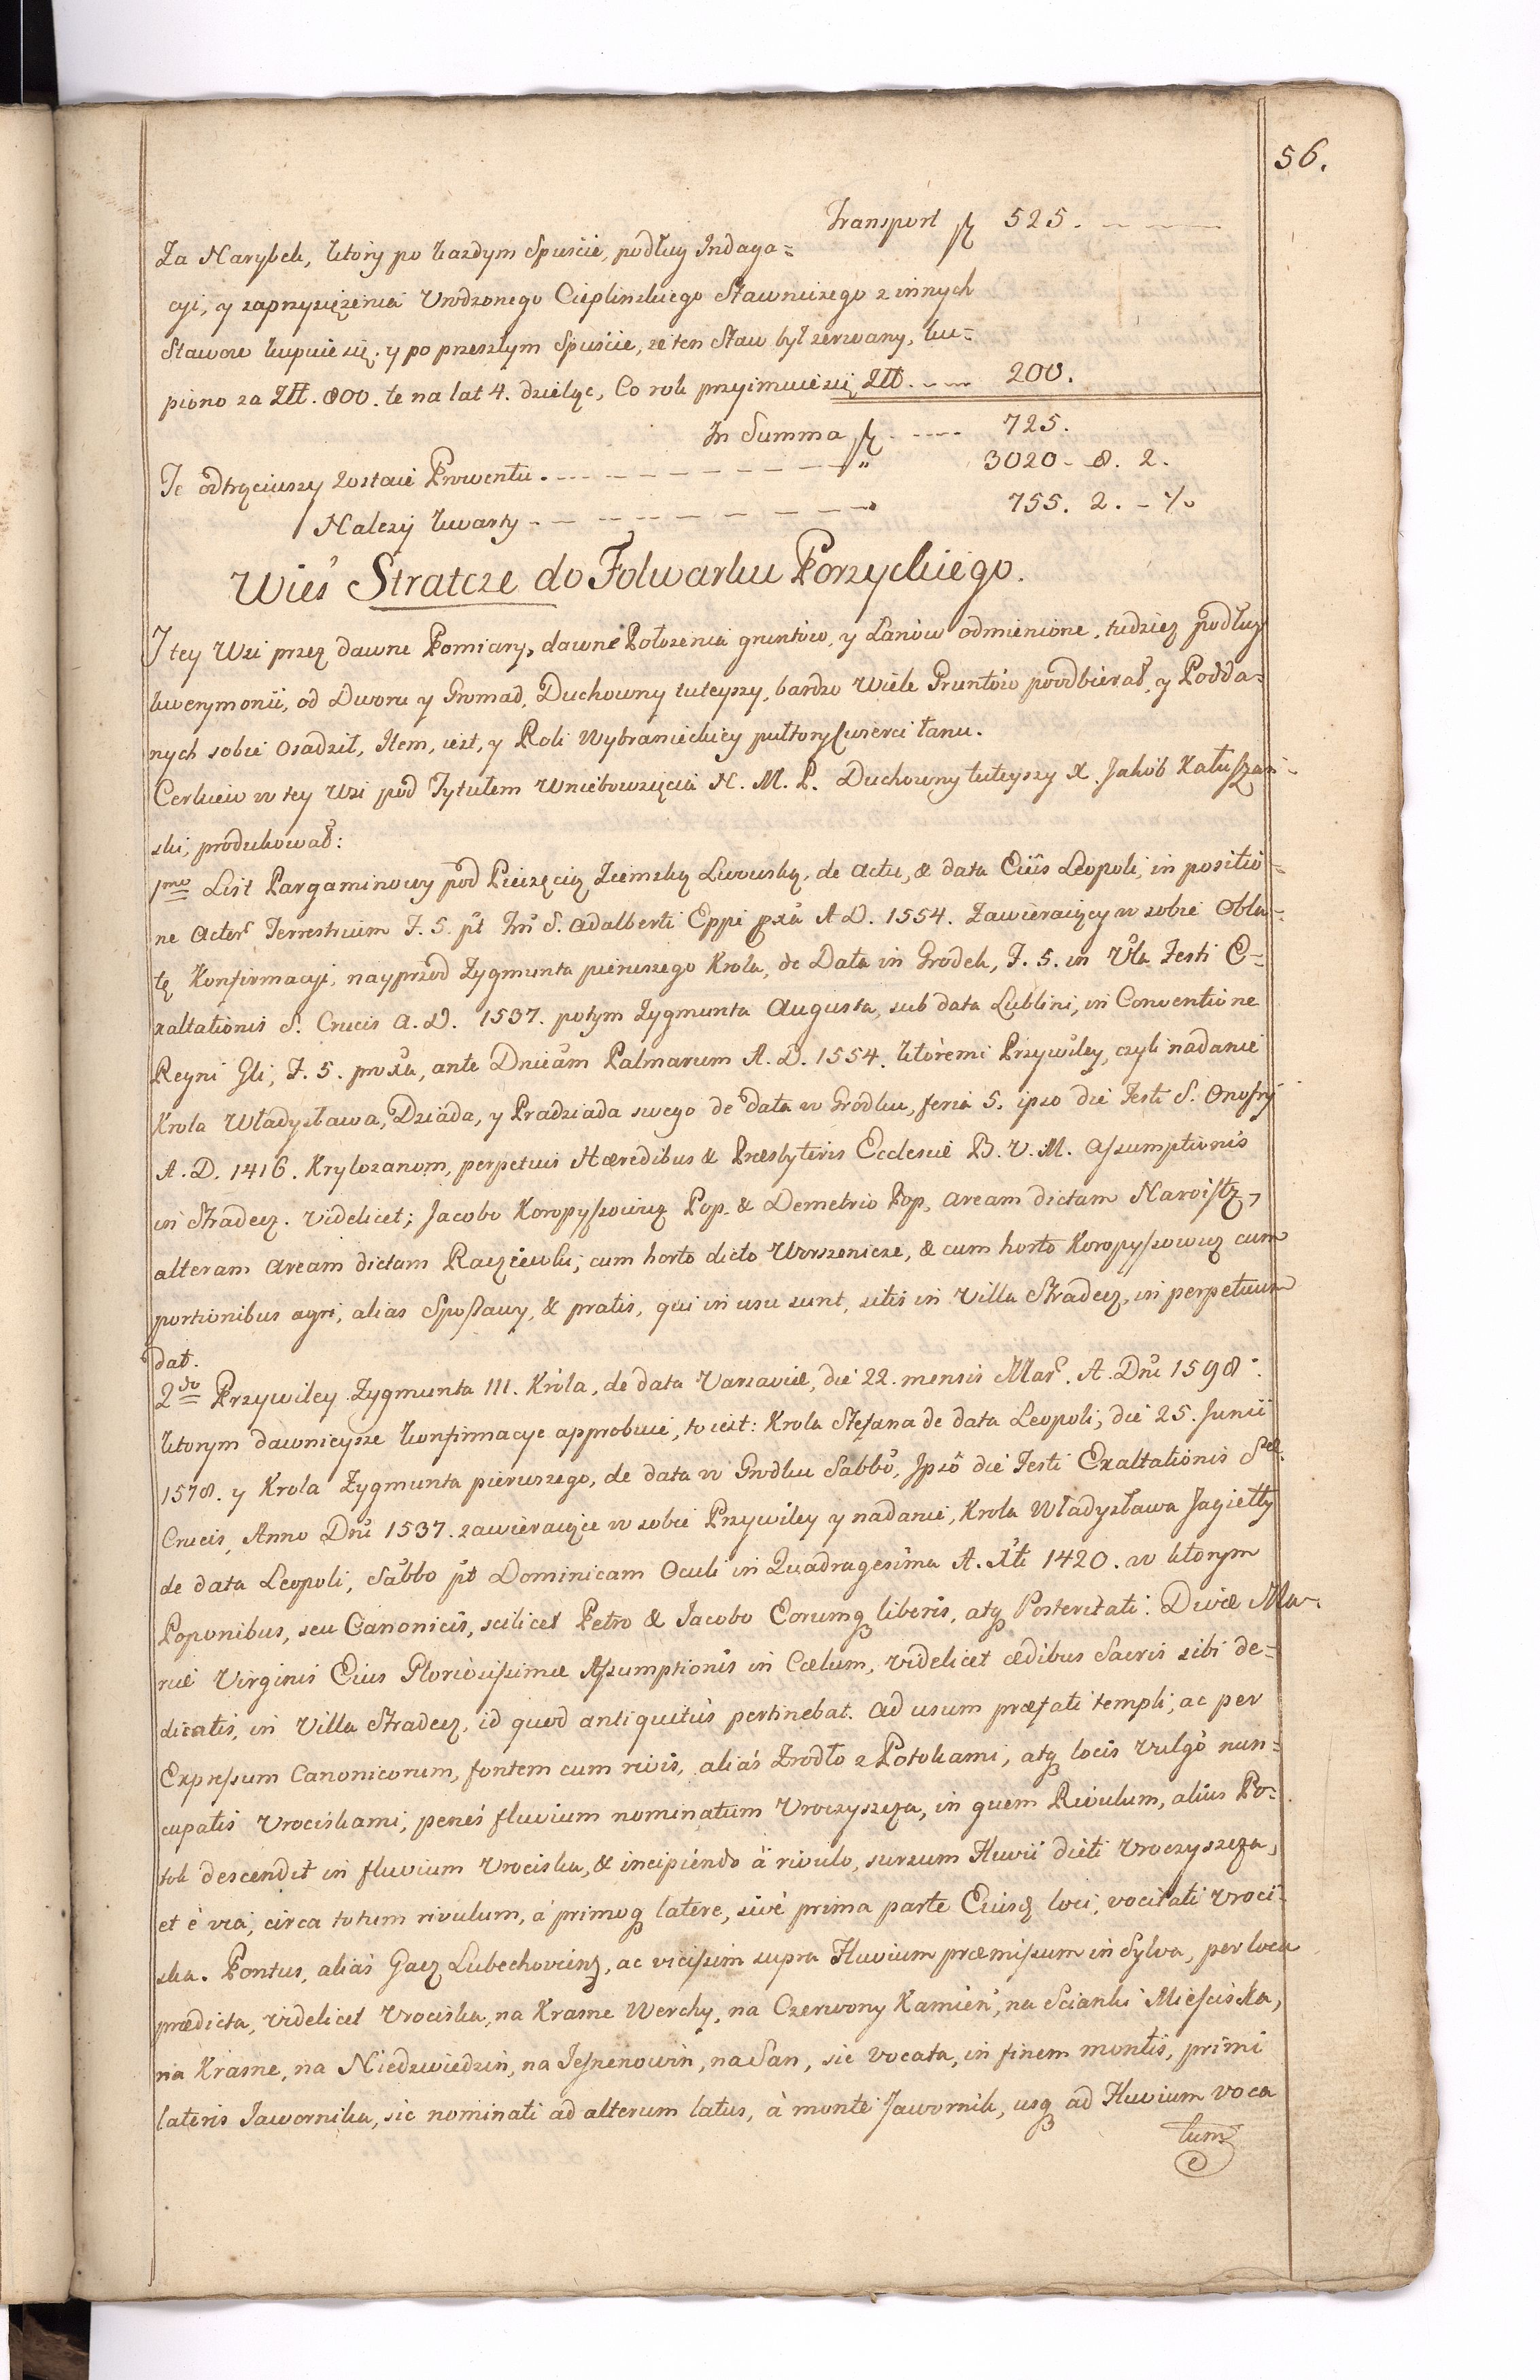 56.
Transport f 525. — — —
Za Narybek, ktory po kazdym Spuscie, podług Indaga=
cyi, y zaprzysięzenia Urodzonego Cieplinskiego Stawniczego z innych
Stawow kupuie się. y po przeszłym Spuscie, ze ten Staw był zerwany, ku=
piono za Złł. 800. te na lat 4. dzieląc, Co rok przyimuie się Złł. — — 200.
In Summa f — — — 725.
Te odtrąciwszy zostaie Prowentu. — — — — — — — „ 3020 - 8. 2.
Nalezy kwarty - — — — — — — — — „ 755. 2. - ½
Wieś Stratcze do Folwarku Porzyckiego.
I tey Wsi przez dawne Pomiary, dawne Położenia gruntów, y Łanów odmienione, tudziez podług
kwerymonii, od Dworu y Gromad, Duchowny tuteyszy, bardzo Wiele Gruntów poodbierał, y Podda=
nych sobie Osadził, Item, iest, y Roli Wybranieckiey pułtory ćwierci łanu.
Cerkiew w tey Wsi pod Tytułem Wniebowzięcia N. M. P. Duchowny tuteyszy X. Jakób Kałuszań=
ski, produkował:
1mo List Pargaminowy pod Pieczęcią Ziemską Lwowską, de actu, & data Eius Leopoli, in positio=
ne Actor Terrestrium F. 5. pt Fm S. Adalberti Eppi pxa A D. 1554. Zawieraiący w sobie Obla=
tę Konfirmacyi, nayprzod Zygmunta pierwszego Krola, de Data in Grodek, F. 5. in Vla Festi E=
xaltationis S. Crucis A. D. 1537. potym Zygmunta Augusta, sub data Lublini, in Conventione
Regni Gli, F. 5. proxa, ante Dnicam Palmarum A. D. 1554. ktoremi Przywiley, czyli nadanie
Krola Władysława, Dziada, y Pradziada swego de data w Grodku, feria 5. ipso die Festi S. Onofry
A. D. 1416. Krylozanom, perpetuis Hæredibus & Præsbyteris Ecclesiæ B. V. M. Assumptionis
in Stradecz. Videlicet; Jacobo Koropyssowicz Pop. & Demetrio Pop, Aream dictam Naroistz,
alteram Aream dictam Raczićwski, cum horto dicto Worszenicze, & cum horto Koropyssowicz cum
portionibus agri, alias Spossawy, & pratis, qui in usu sunt, sitis in Villa Stradecz, in perpetuum
dat.
2do Przywiley Zygmunta III. Króla, de data Varsaviæ, die 22. mensis Mar. A. Dni 1598.
ktorym dawnieysze konfirmacye approbuie, to iest: Krola Stefana de data Leopoli, die 25. Junii
1578. y Krola Zygmunta pierwszego, de data w Grodku Sabbo, Ipso die Festi Exaltationis Sæ.
Crucis, Anno Dni 1537. zawieraiące w sobie Przywiley y nadanie, Krola Władysława Jagiełły
de data Leopoli, Sabbo pt Dominicam Oculi in Quadragesima A. Xti 1420. w ktorym
Poponibus, seu Canonicis, scilicet Petro & Jacobo Eorumq liberis, atq Posteritati. Divæ Ma=
riæ Virginis Eius Gloriosissimæ Assumptionis in Cælum, videlicet ædibus Sacris sibi de=
dicatis, in Villa Stradecz, id quod antiquitùs pertinebat. Ad usum præfati templi, ac per
Expressum Canonicorum, fontem cum rivis, aliás Zrodło z Potokami, atq locis Vulgò nun=
cupatis Vrociskami, penés fluvium nominatum Vroczyszcza, in quem Rivulum, alius Po=
tok descendit in fluvium Vrociska, & incipiendo à rivulo, sursum Fluvii dicti Vroczyszcza,
et è via, circa totum rivulum, à primoq latere, sivè prima parte Eiusq loci, vocitati Vroci=
ska. Pontus, aliás Gacz Lubechowinz, ac vicissim supra Fluvium præmissum in Sylva, per loca
prædicta, videlicet Vrociska, na Krasne Werchy, na Czerwony Kamień, na Scianki Mieściska,
na Krasne, na Niedzwiedzin, na Jesnenowin, na San, sic vocata, in finem montis, primi
lateris Jawornika, sic nominati ad alterum latus, à monte Jawornik, usq ad Fluvium voca
tum